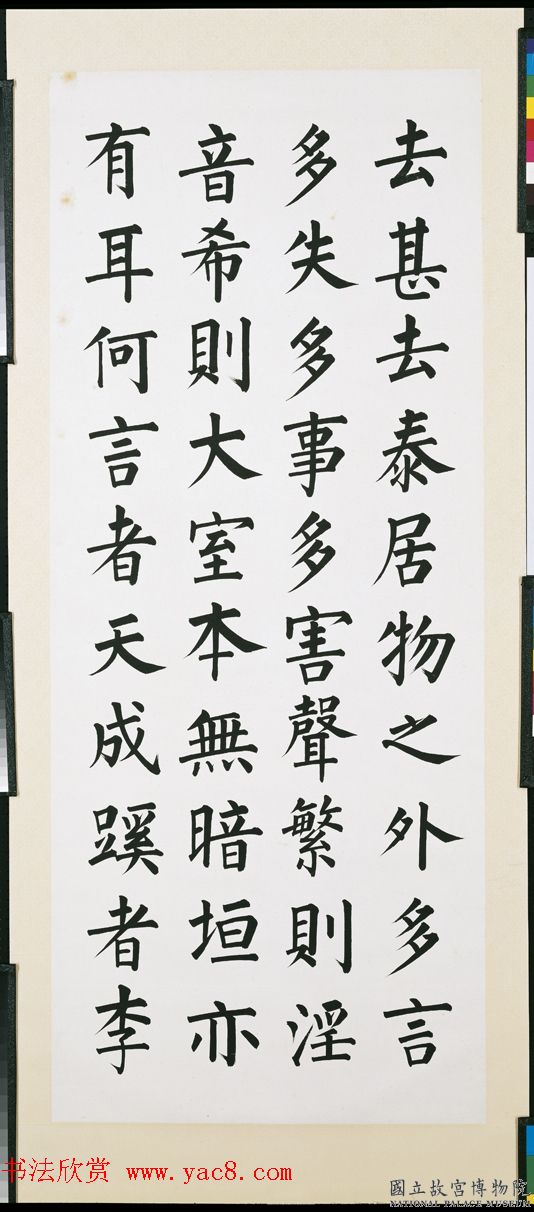 去甚去泰居物之外多言
多失多事多害聲繁則淫
音希則大室本無暗垣亦
有耳何言者天成蹊者李
书法欣赏 www.yac8.com
國立故宮博物院
NATIONAL PALACE MUSEUM